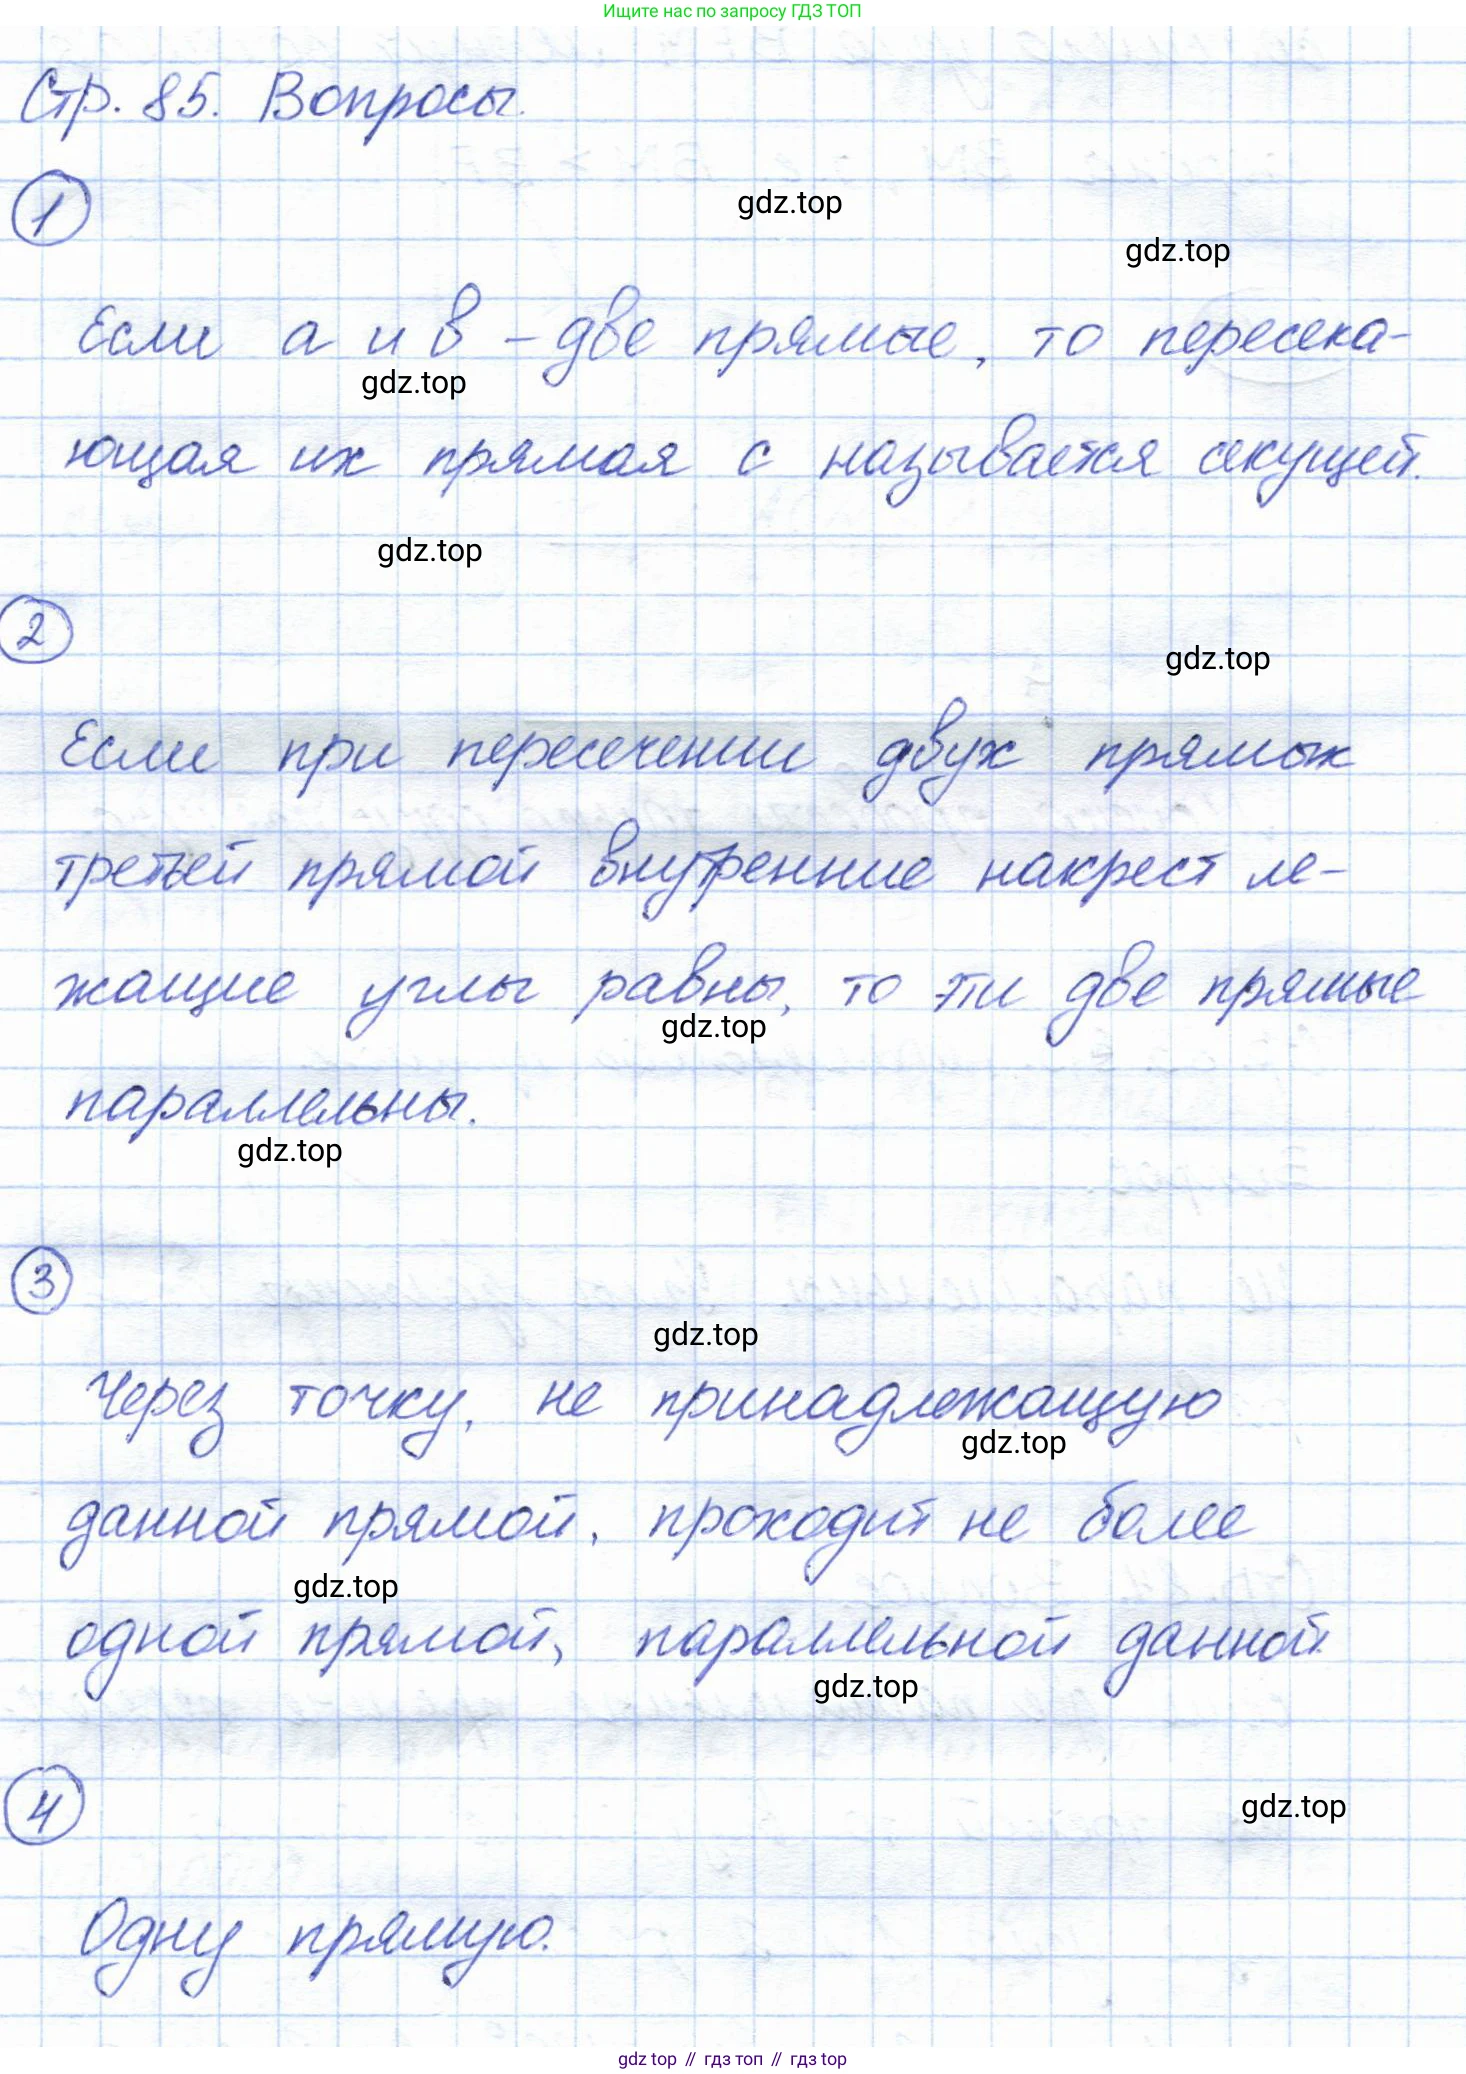 Ищите нас по запросу ГДЗ ТОП
Стр. 85. Вопросы.
1
gdz.top
gdz.top
Если а и в – две прямые, то пересека-
gdz.top
ющая их прямая с называется секущей.
gdz.top
2
gdz.top
Если при пересечении двух прямых
третьей прямой внутренние накрест ле-
жащие углы равны, то эти две прямые
gdz.top
параллельны.
gdz.top
3
gdz.top
Через точку, не принадлежащую
gdz.top
данной прямой, проходит не более
gdz.top
одной прямой, параллельной данной.
gdz.top
4
gdz.top
Одну прямую.
gdz top // гдз топ // гдз top